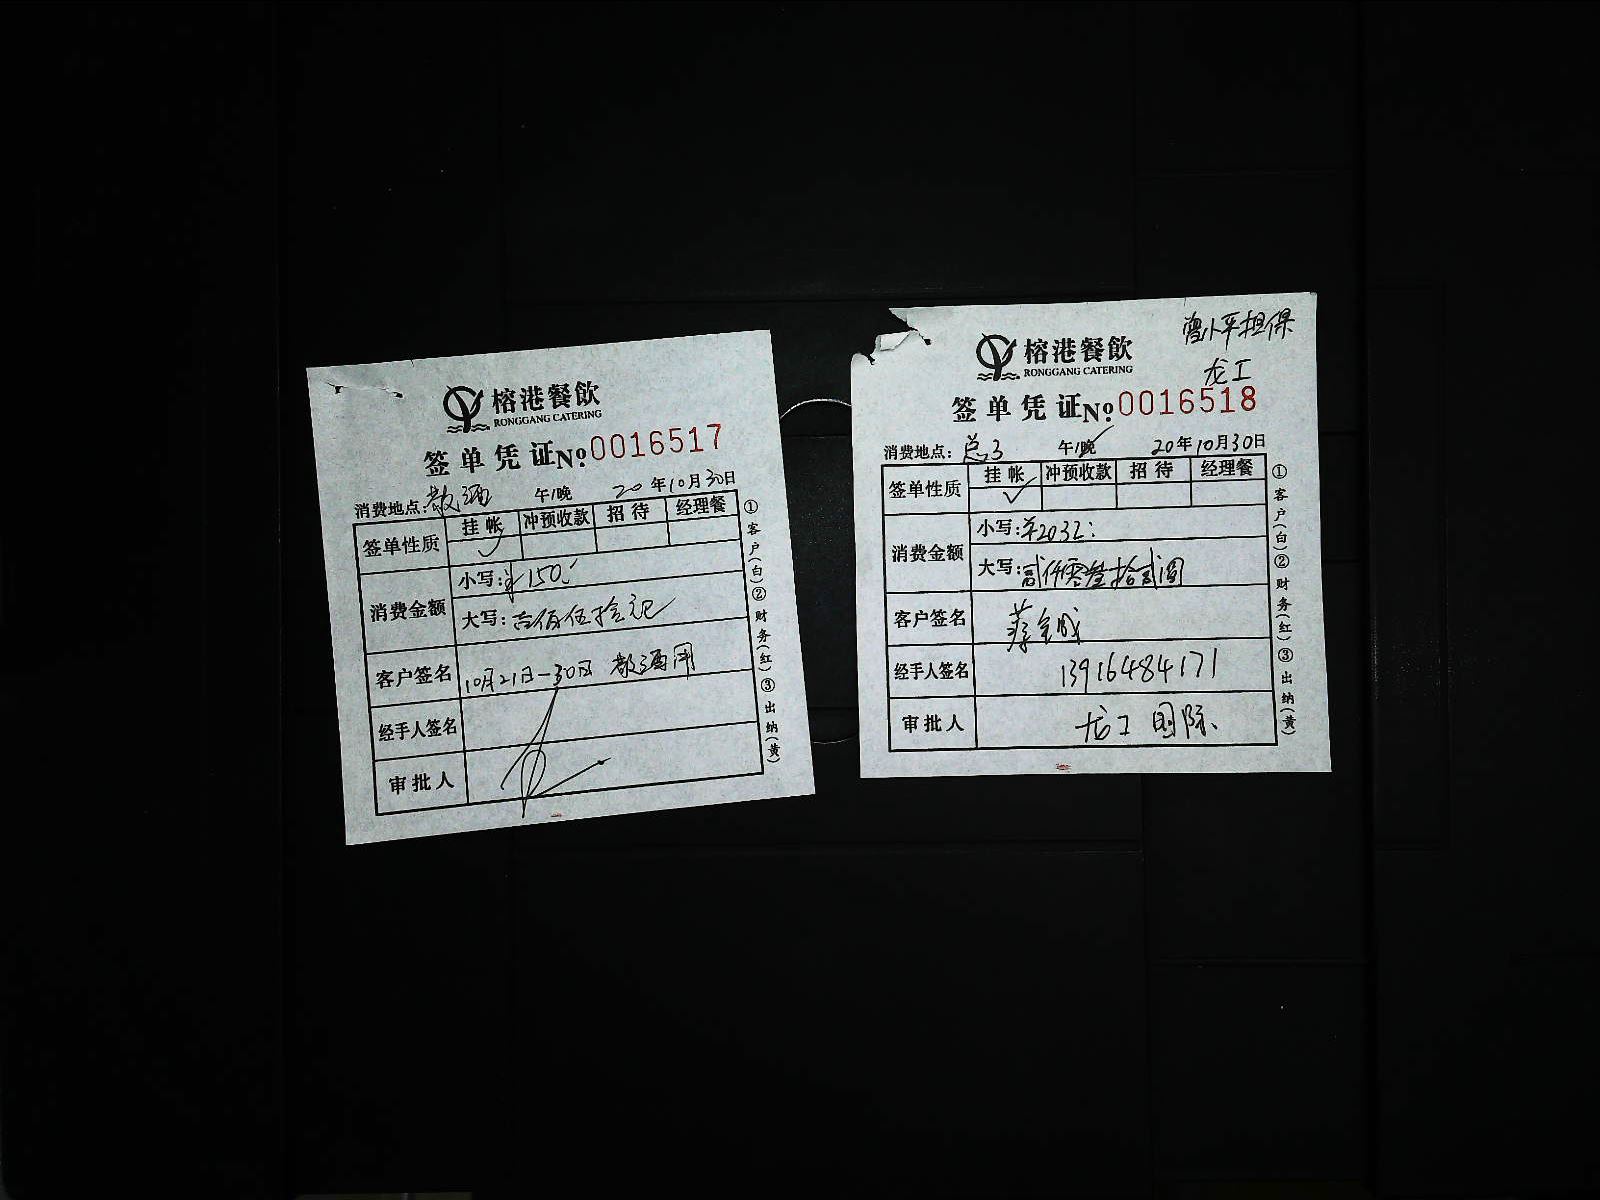 榕港餐飲
RONGGANG CATERING
签单凭证 No. 0016517
消费地点: 散酒 午/晚 20 年 10 月 30 日
签单性质 挂帐 冲预收款 招待 经理餐
✓
消费金额 小写: ¥150.
大写: 壹佰伍拾元
客户签名 10月21日-30日 散酒
经手人签名
审批人
①客户(白)②财务(红)③出纳(黄)
曾小平担保
龙工
榕港餐飲
RONGGANG CATERING
签单凭证 No. 0016518
消费地点: 总3 午/晚 20 年 10 月 30 日
签单性质 挂帐 冲预收款 招待 经理餐
✓
消费金额 小写: ¥2032:
大写: 贰仟零叁拾贰圆
客户签名 蔡金成
经手人签名 13916484171
审批人 龙工国际
①客户(白)②财务(红)③出纳(黄)